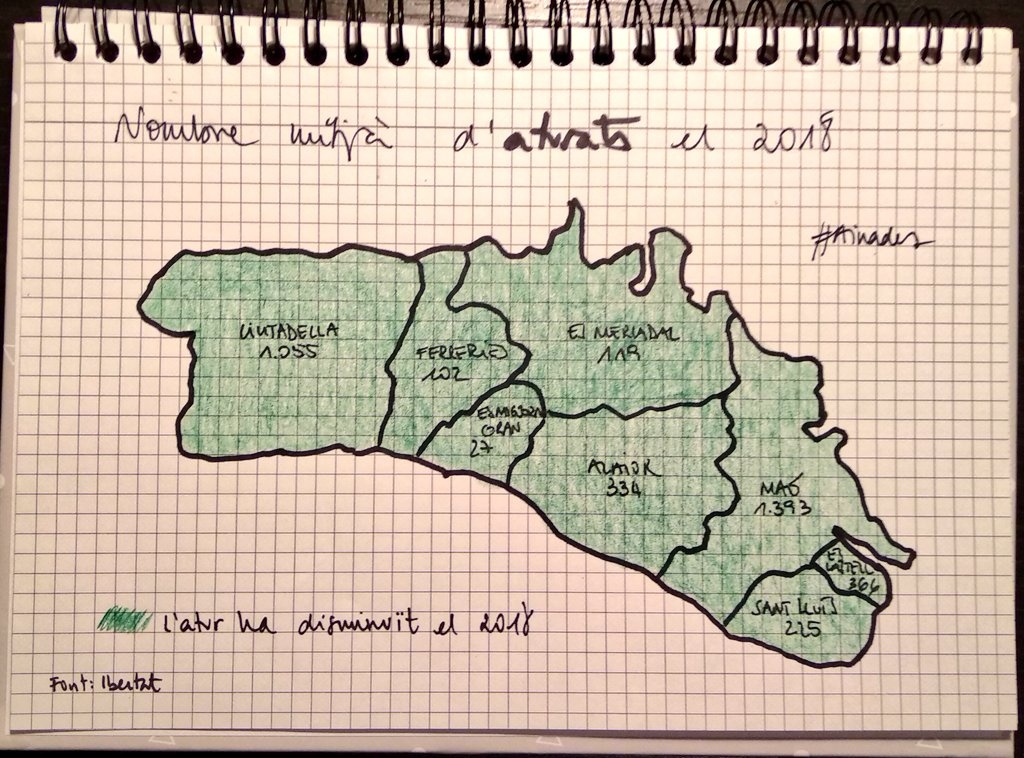 Nombre mitjà d'aturats el 2018
#Ainades
CIUTADELLA
1.055
FERRERIES
102
ES MERCADAL
119
ES MIGJORN
GRAN
27
ALAIOR
334
MAÓ
1.393
ES
CASTELL
366
SANT LLUÍS
225
l'atur ha disminuït el 2018
Font: Ibestat